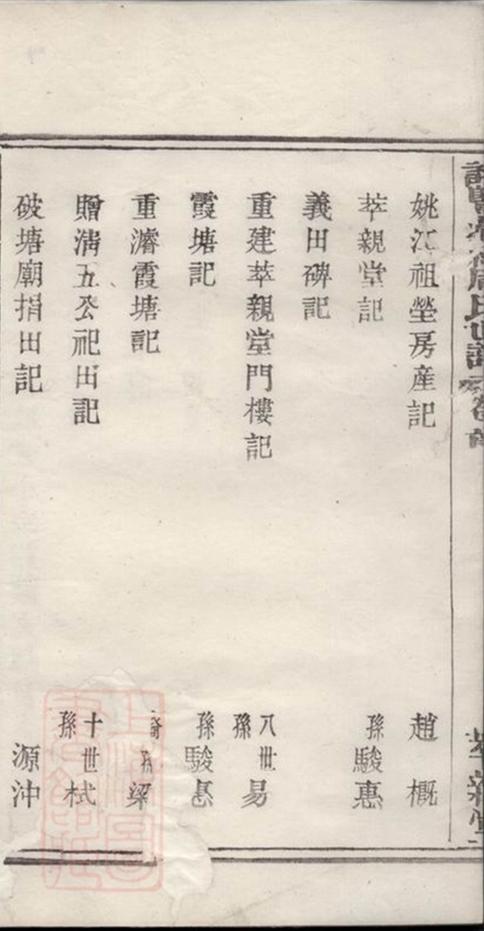 周氏世譜
姚江祖塋房產記 趙概
萃親堂記 孫駿惠
義田碑記
重建萃親堂門樓記 八世孫易
霞塘記 孫駿惠
重濬霞塘記 裔孫梁
贈淸五公祀田記 十世孫栻
破塘廟捐田記 源沖